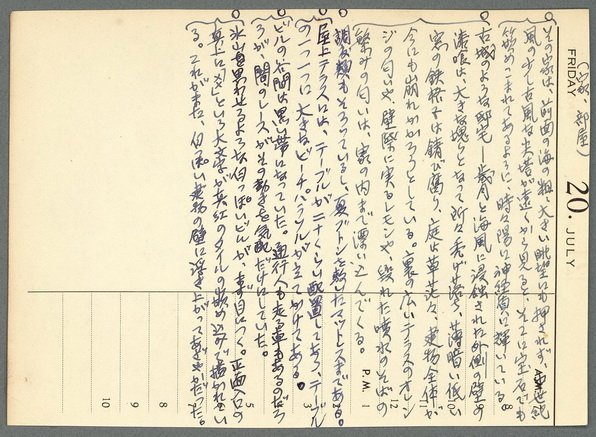 (家・部屋)
FRIDAY
20. JULY
その家は、前面の海の粗い大きい眺望にも押されず、中世紀
風の少し古風な土塔が遠くから見ると、そこに宝石でも
ちりばめこまれてあるように、時々陽に神経質に輝いている
古城のような邸宅—歳月と海風に浸蝕された外側の壁の
漆喰は、大きな塊となって所々禿げ落ち、薄暗い低い
窓の鉄格子は錆び腐り、庭は草茫々、建物全体が
今にも崩れかかろうとしている。裏の広いテラスのオレン
ジの匂いや、壁際に実るレモンや、毀れた噴水のそばの
繁みの匂いは、家の内まで漂い込んでくる。
調度類もそろっているし、夏ブトンを敷いたマットレスまである。
屋上テラスには、テーブルが二十くらい配置してあって、テーブル
の一つ一つに大きなビーチ・パラソルが立てかけてある。
ビルの谷間は黒い帯になっていた。通行人も走る車もあるのだろう
が、闇のレースがその動きを気配だけにしていた。
氷山を思わせるような白っぽいビルが、まず目につく。正面入口の
真上に「 」という大文字が真紅のタイルの嵌め込みで描かれてい
る。これがまた、白っぽい建物の壁に浮き上がってあざやかだった。
A.M.
8
11
12
P.M.
1
3
5
7
8
9
10